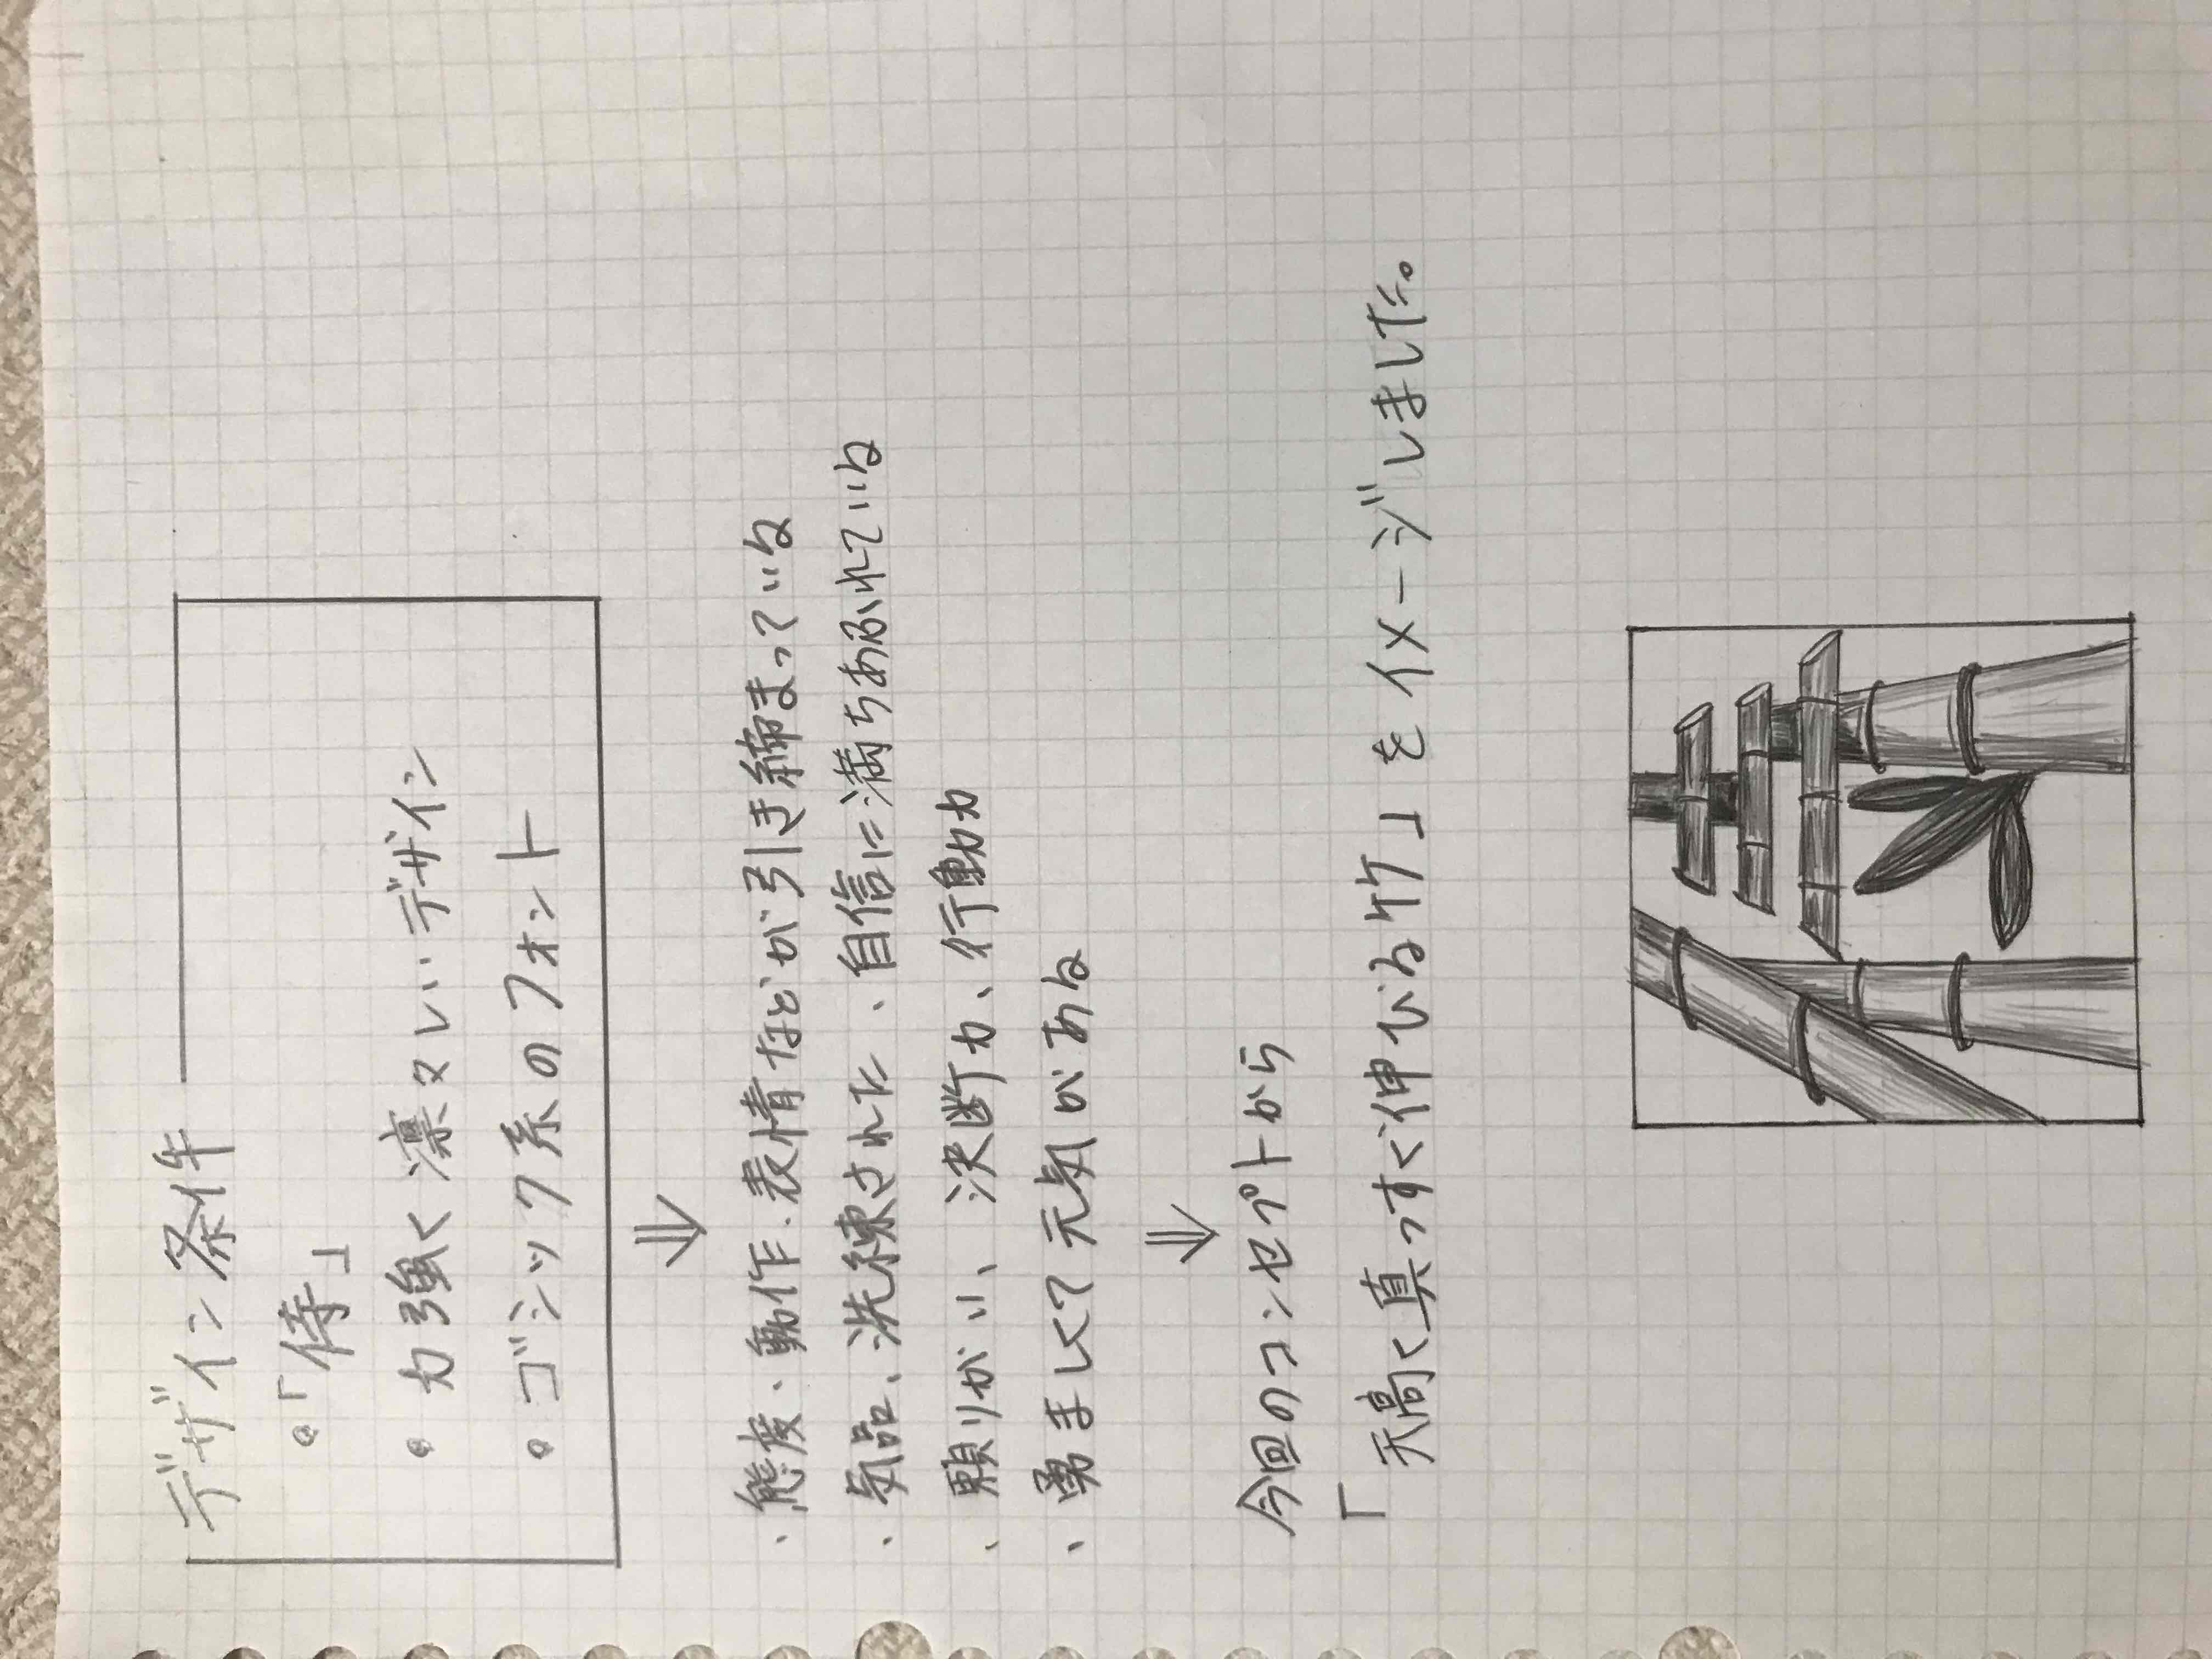 デザイン条件
・「侍」
・力強く凛々しいデザイン
・ゴシック系のフォント
⇓
、態度、動作、表情などが引き締まっている
、気品、洗練された、自信に満ちあふれている
、頼りがい、決断力、行動力
、勇ましくて元気がある
⇓
今回のコンセプトから
「天高く真っすぐ伸びる竹」をイメージしました。
侍